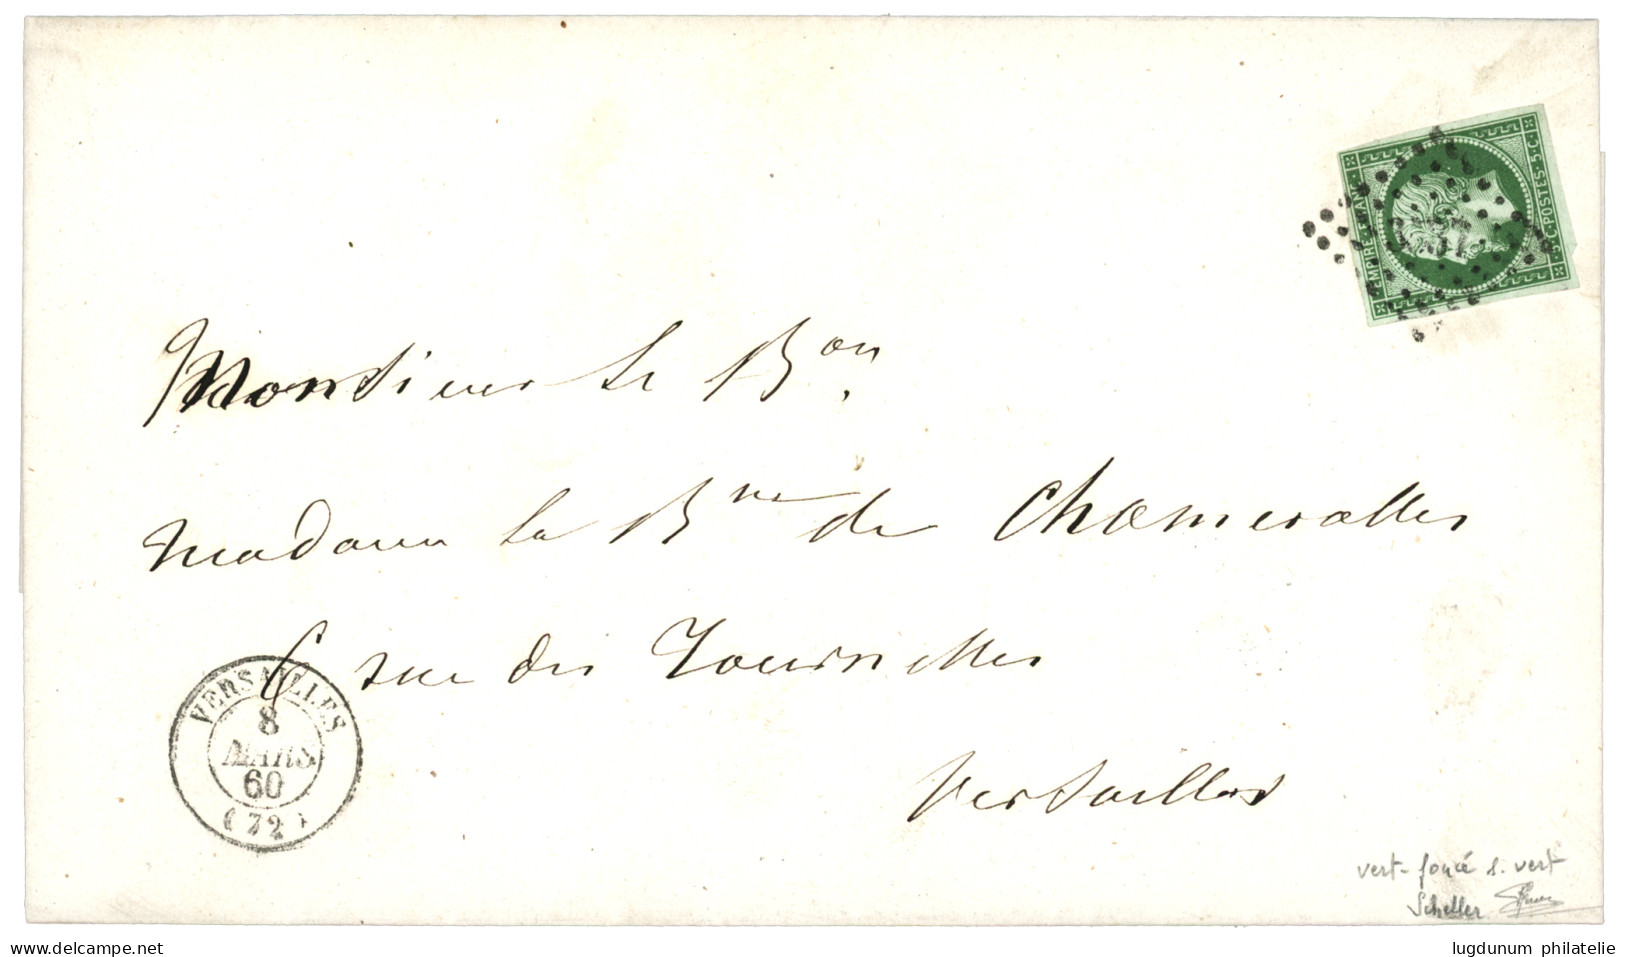 EMPIRE · FRANC ·
5·C·POSTES·5·C·
Monsieur le Bon.
Madame la Bnne de Chameralles
6 rue des Tournelles
Versailles
VERSAILLES
8
MARS
60
(72)
vert-foncé s. vert
Scheller
lugdunum philatelie